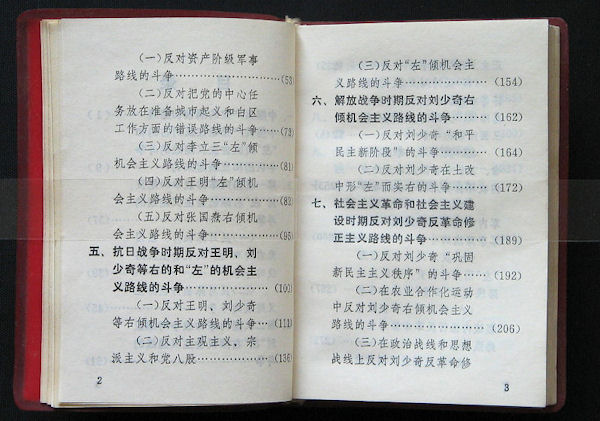 (一)反对资产阶级军事
路线的斗争……………(53)
(二)反对把党的中心任
务放在准备城市起义和白区
工作方面的错误路线的斗争…(73)
(三)反对李立三“左”倾
机会主义路线的斗争………(81)
(四)反对王明“左”倾机
会主义路线的斗争…………(82)
(五)反对张国焘右倾机
会主义路线的斗争…………(95)
五、抗日战争时期反对王明、刘
少奇等右的和“左”的机会主
义路线的斗争……………(100)
(一)反对王明、刘少奇
等右倾机会主义路线的斗争…(111)
(二)反对主观主义、宗
派主义和党八股……………(136)
2
(三)反对“左”倾机会主
义路线的斗争……………(154)
六、解放战争时期反对刘少奇右
倾机会主义路线的斗争……(162)
(一)反对刘少奇“和平
民主新阶段”的斗争………(164)
(二)反对刘少奇在土改
中形“左”而实右的斗争……(172)
七、社会主义革命和社会主义建
设时期反对刘少奇反革命修
正主义路线的斗争…………(189)
(一)反对刘少奇“巩固
新民主主义秩序”的斗争……(192)
(二)在农业合作化运动
中反对刘少奇右倾机会主义
路线的斗争………………(206)
(三)在政治战线和思想
战线上反对刘少奇反革命修
3